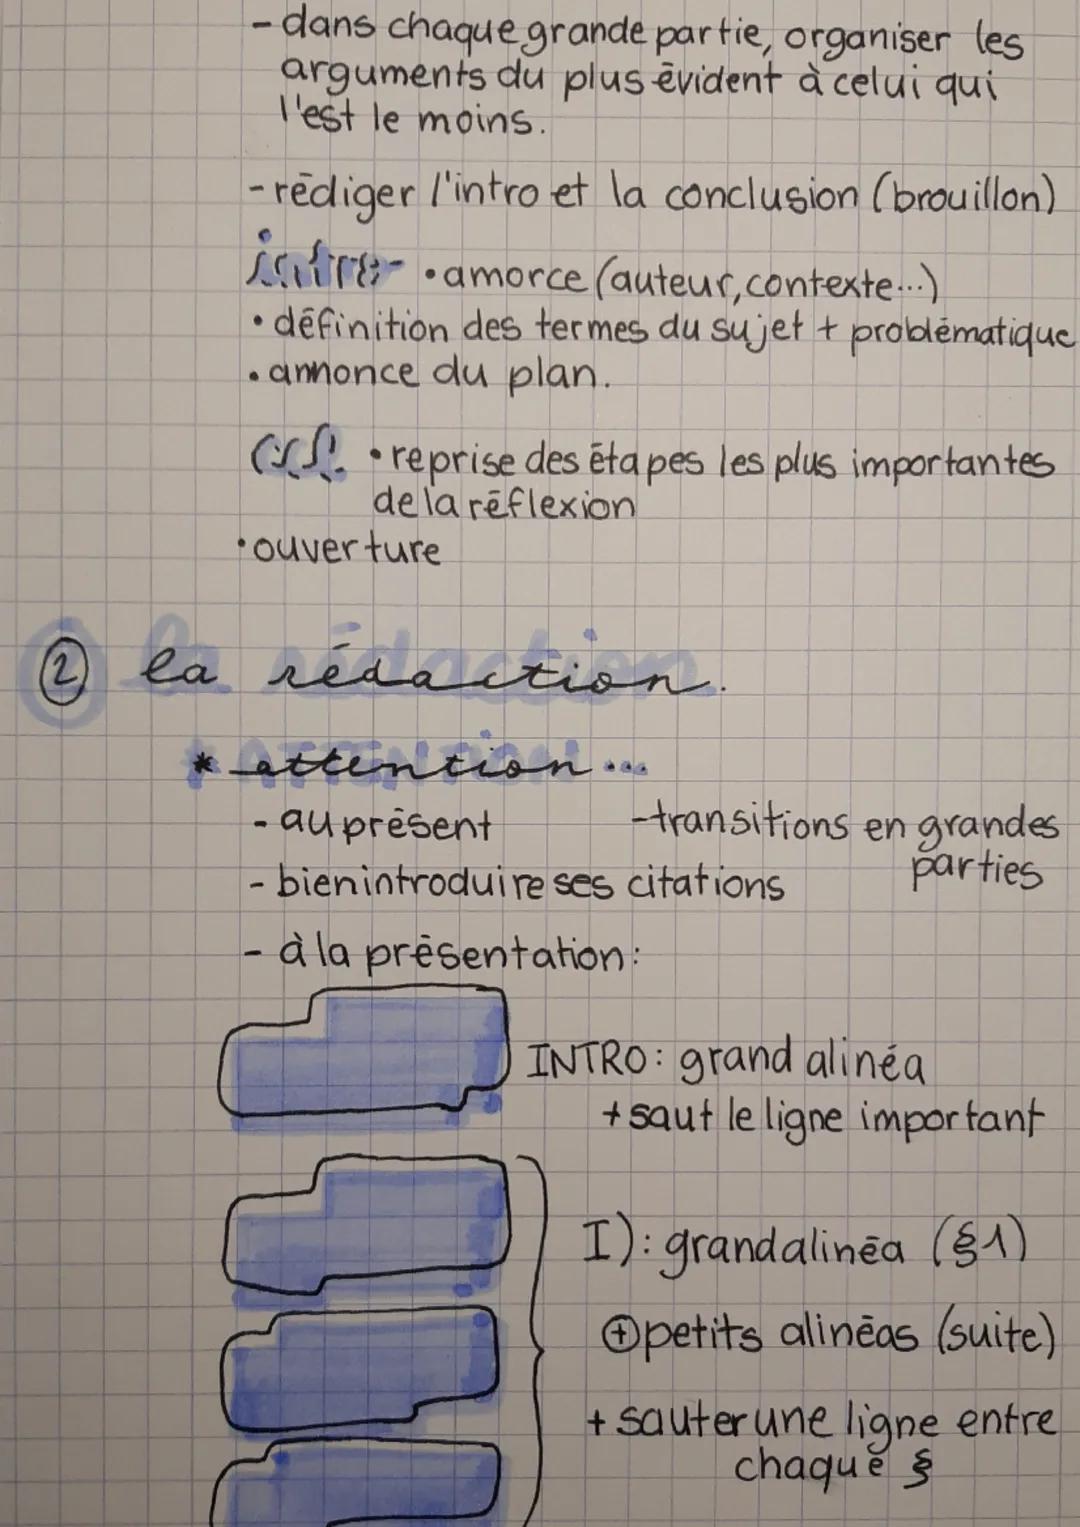 - dans chaque grande partie, organiser les
arguments du plus évident à celui qui
l'est le moins.
- rédiger l'intro et la conclusion (brouillon)
intro- • amorce (auteur, contexte...)
• définition des termes du sujet + problématique
• annonce du plan.
ccl. • reprise des étapes les plus importantes
de la réflexion
• ouverture
② la rédaction.
* attention...
- au présent
- transitions en grandes
parties
- bien introduire ses citations
- à la présentation:
INTRO: grand alinéa
+ saut le ligne important
I): grand alinéa (§1)
⊕ petits alinéas (suite)
+ sauter une ligne entre
chaque §